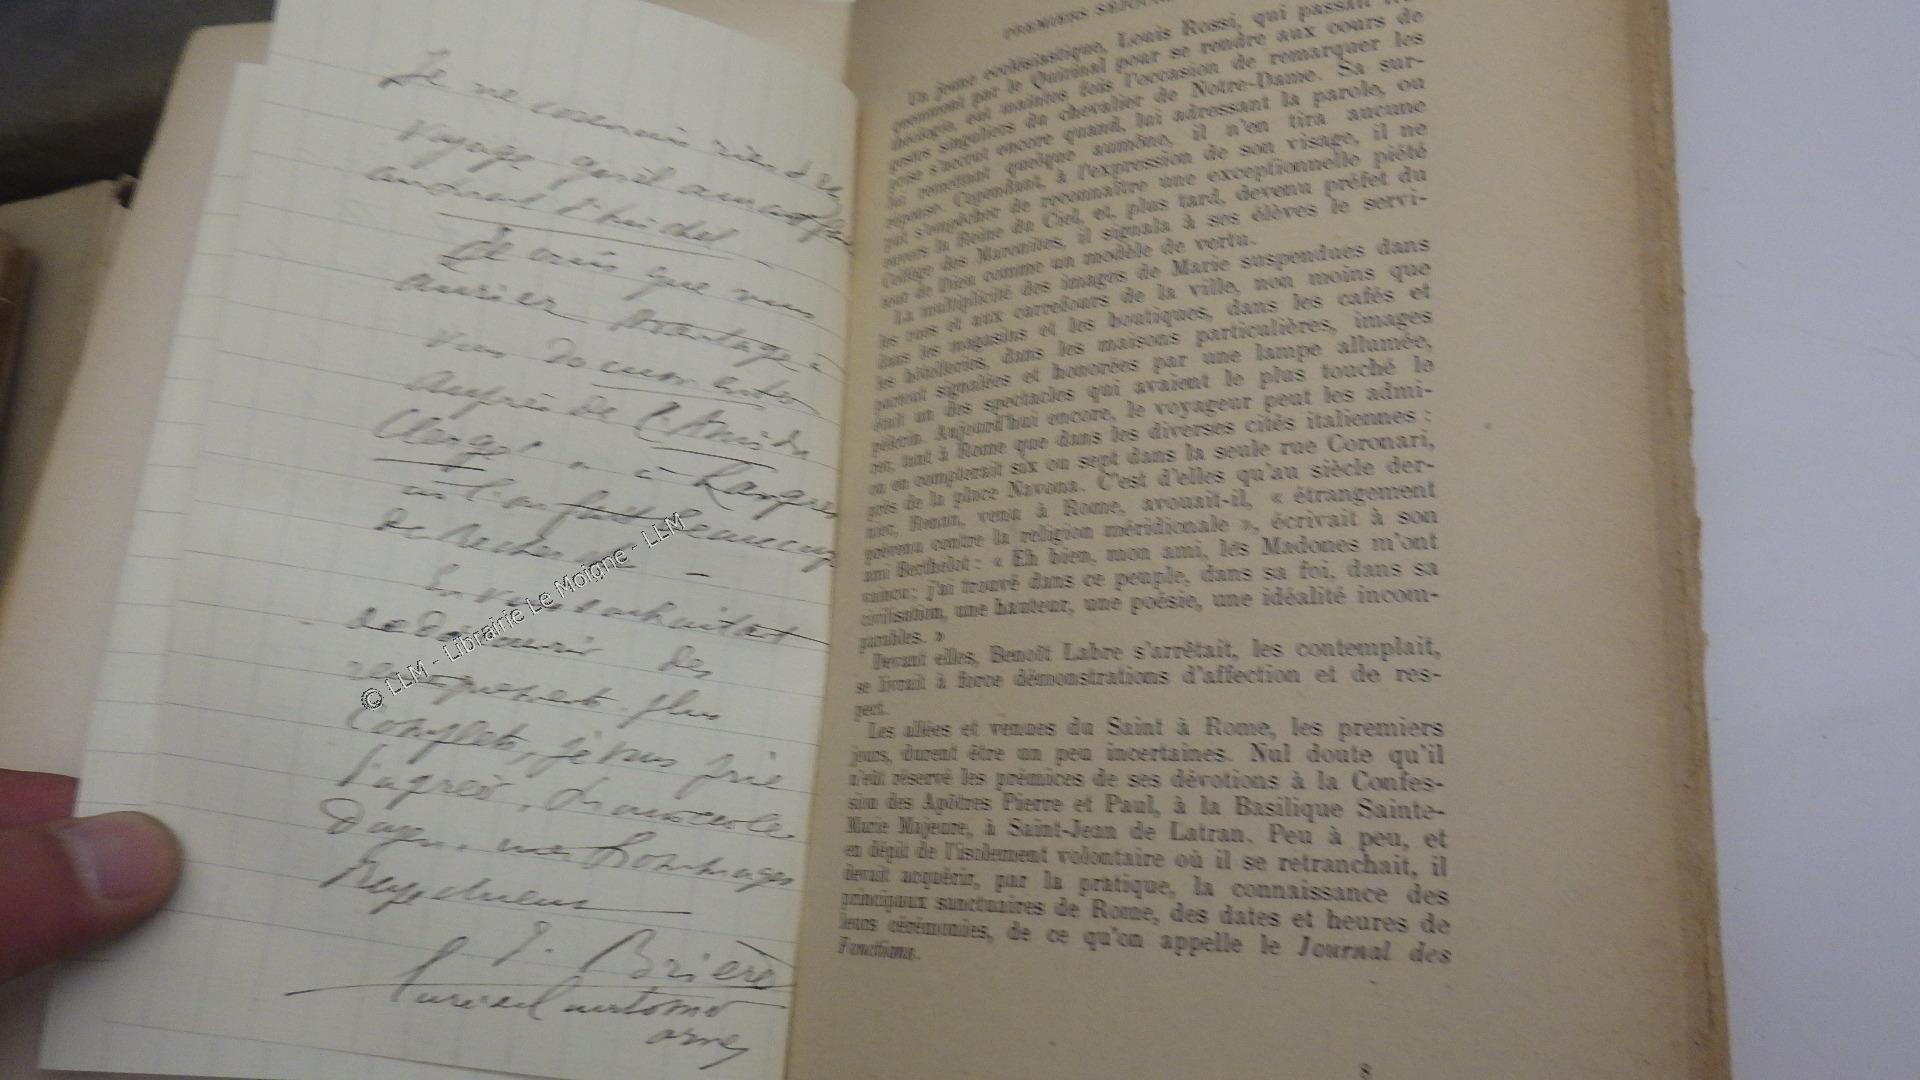 Je ne connais rien des
voyage qu'il aurait
andrait
Je crois que vous
auriez avantage à
vous documenter
auprès de l'Ami du
Clergé " à Langres
on l'on fait beaucoup
de recherches -
En vous souhaitant
de des
plus
complets, je vous prie
d'agréer,
Doyen, mes hommages
Respectueux
J. Brière
orne
© LLM - Librairie Le Moigne - LLM
PREMIERS
Un jeune ecclésiastique, Louis Rossi, qui passait
par le Quirinal pour se rendre aux cours de
théologie, eut maintes fois l'occasion de remarquer les
gestes singuliers du chevalier de Notre-Dame. Sa sur-
prise s'accrut encore quand, lui adressant la parole, ou
lui remettant quelque aumône, il n'en tira aucune
réponse. Cependant, à l'expression de son visage, il ne
put s'empêcher de reconnaître une exceptionnelle piété
envers la Reine du Ciel, et, plus tard, devenu préfet du
Collège des Maronites, il signala à ses élèves le servi-
teur de Dieu comme un modèle de vertu.
La multiplicité des images de Marie suspendues dans
les rues et aux carrefours de la ville, non moins que
dans les magasins et les boutiques, dans les cafés et
les hôtelleries, dans les maisons particulières, images
partout signalées et honorées par une lampe allumée,
était un des spectacles qui avaient le plus touché le
pèlerin. Aujourd'hui encore, le voyageur peut les admi-
rer, tant à Rome que dans les diverses cités italiennes :
on en compterait six ou sept dans la seule rue Coronari,
près de la place Navona. C'est d'elles qu'au siècle der-
nier, Renan, venu à Rome, avouait-il, « étrangement
prévenu contre la religion méridionale », écrivait à son
ami Berthelot : « Eh bien, mon ami, les Madones m'ont
vaincu ; j'ai trouvé dans ce peuple, dans sa foi, dans sa
civilisation, une hauteur, une poésie, une idéalité incom-
parables. »
Devant elles, Benoît Labre s'arrêtait, les contemplait,
se livrait à force démonstrations d'affection et de res-
pect.
Les allées et venues du Saint à Rome, les premiers
jours, durent être un peu incertaines. Nul doute qu'il
n'eût réservé les prémices de ses dévotions à la Confes-
sion des Apôtres Pierre et Paul, à la Basilique Sainte-
Marie Majeure, à Saint-Jean de Latran. Peu à peu, et
en dépit de l'isolement volontaire où il se retranchait, il
devait acquérir, par la pratique, la connaissance des
principaux sanctuaires de Rome, des dates et heures de
leurs cérémonies, de ce qu'on appelle le Journal des
Fonctions.
8